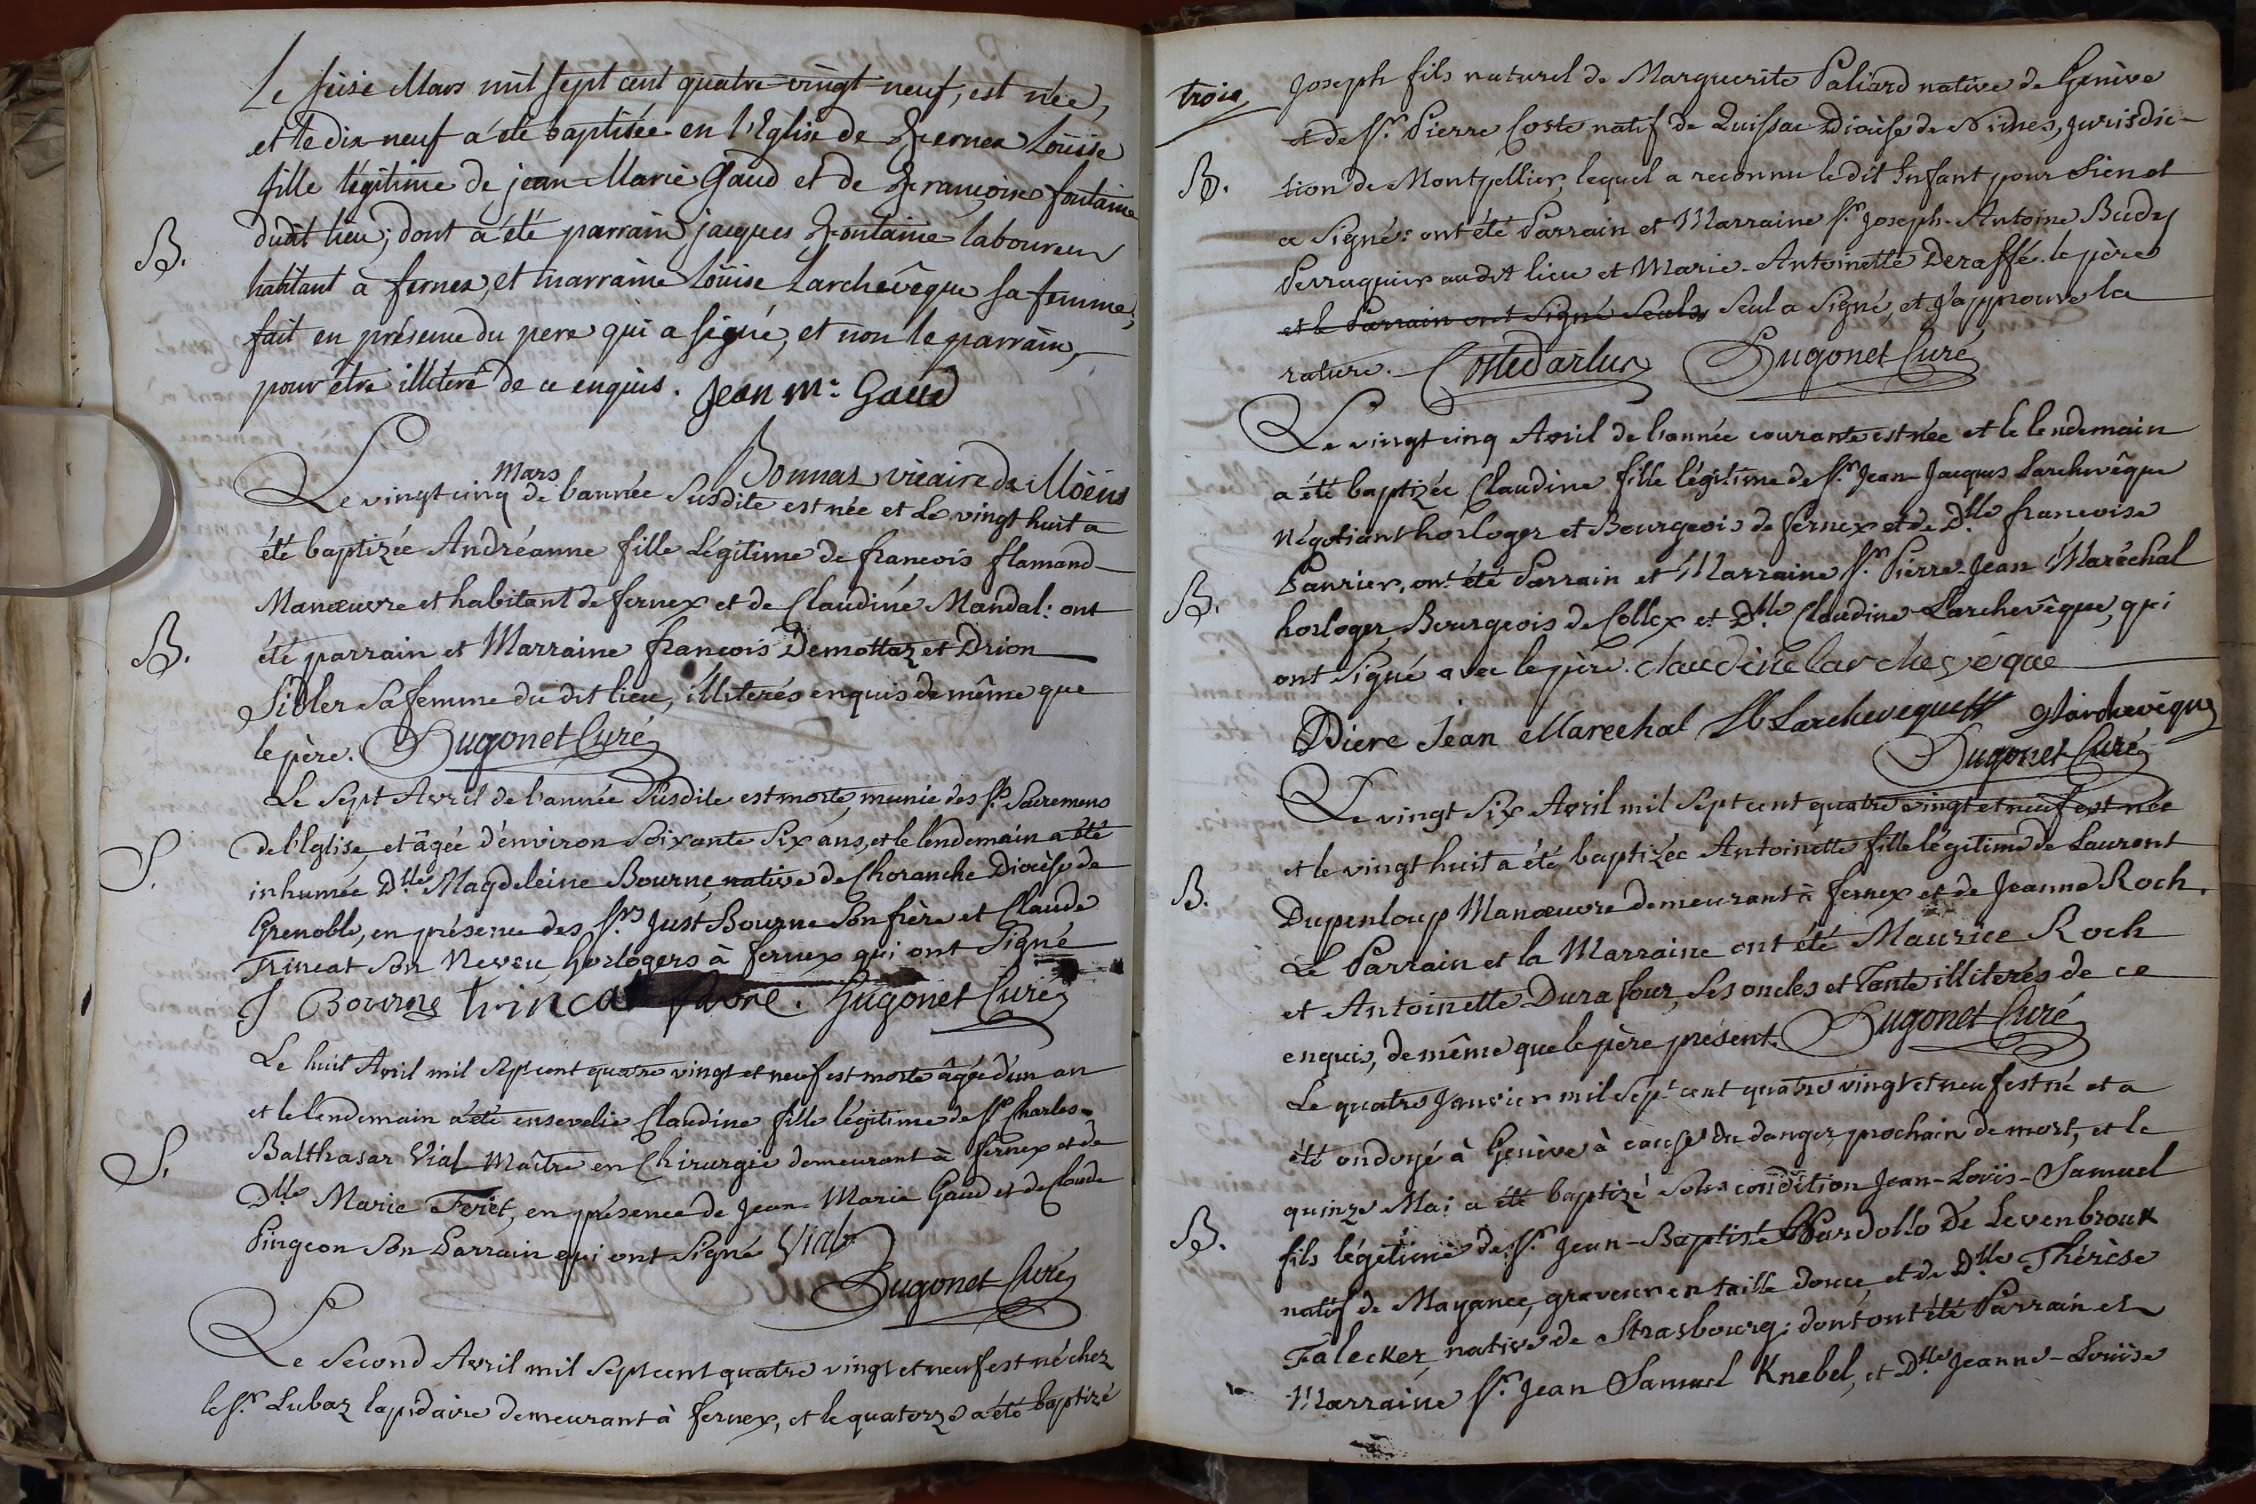 Le seise Mars mil sept cent quatre vingt neuf, est née,
et le dix neuf a été baptisée en l'Eglise de Fernex Loüise
fille légitime de jean Marie Gaud et de Françoise fontaine
dudit lieu; dont a été parrain jacques Fontaine laboureur
B.
habitant à fernex, et marraine Loüise Larchevêque sa femme;
fait en présence du pere qui a signé, et non le parrain,
pour être illiteré de ce enquis. Jean M. Gaud
Bonnaz vicaire de Moëns
Le vingt cinq Mars de l'année Susdite est née et le vingt huit a
été baptizée Andréanne fille Légitime de francois flamand
Manœuvre et habitant de fernex et de Claudine Mandal: ont
B.
été parrain et Marraine françois Demottaz et Drion
Sibler sa femme du dit lieu, illiterés enquis de même que
le père. Hugonet Curé
Le Sept Avril de l'année Susdite est morte, munie des Sts. Sacremens
S.
de l'Eglise, et âgée d'environ Soixante Six ans, et le lendemain a été
inhumée Dlle Magdeleine Bourne native de Choranche Diocèse de
Grenoble, en présence des Srs Just Bourne Son frère et Claude
Trincat Son Neveu, horlogers à fernex qui ont Signé
J Bourne trincat Hugonet Curé
Le huit Avril mil Sept cent quatre vingt et neuf est morte âgée d'un an
et le lendemain a été ensevelie Claudine fille légitime de Sr Charles-
S.
Balthasar Vial Maître en Chirurgie demeurant à fernex et de
Dlle Marie Feret, en présence de Jean-Marie Gaud et de Claude
Pingeon Son Parrain qui ont Signé Vial
Hugonet Curé
Le Second Avril mil Sept cent quatre vingt et neuf est né chez
le Sr. Lubaz lapidaire demeurant à fernex, et le quatorze a été baptizé
trois
Joseph fils naturel de Marguerite Paliard native de Genève
et de Sr. Pierre Coste natif de Quissac Diocèse de Nimes, Jurisdic-
B.
tion de Montpellier, lequel a reconnu le dit Enfant pour Sien et
a Signé: ont été Parrain et Marraine Sr. Joseph-Antoine Budy
Perruquier au dit lieu et Marie-Antoinette Deraffé. le père
et le Parrain ont Signé Seuls Seul a Signé, et j'approuve la
rature. Costedarluc Hugonet Curé
Le vingt cinq Avril de l'année courante est née et le lendemain
a été baptizée Claudine fille légitime de Sr. Jean-Jacques Larchevêque
Négotiant horloger et Bourgeois de fernex et de Dlle francoise
B.
Panrier, ont été Parrain et Marraine Sr. Pierre-Jean Maréchal
horloger, Bourgeois de Collex et Dlle Claudine Larchevêque, qui
ont Signé avec le père. claudine larchevêque
Piere Jean Marechal Larcheveque Larchevêque
Hugonet Curé
Le vingt Six Avril mil Sept cent quatre vingt et neuf est née
et le vingt huit a été baptizée Antoinette fille légitime de Laurent
B.
Dupenloup Manœuvre demeurant à fernex et de Jeanne Roch.
Le Parrain et la Marraine ont été Maurice Roch
et Antoinette Durafour, Ses oncles et Tante illiterés de ce
enquis, de même que le père présent. Hugonet Curé
Le quatre Janvier mil Sept cent quatre vingt et neuf est né et a
été ondoyé à Genève à cause du danger prochain de mort, et le
quinze Mai a été baptizé Sous condition Jean-Loüis-Samuel
B.
fils légitime de Sr. Jean-Baptiste Pardollo de Levenbrouk
natif de Mayance, graveur en taille douce, et de Dlle Thérèse
Falecker native de Strasbourg: dont ont été Parrain et
Marraine Sr. Jean Samuel Knebel, et Dlle Jeanne-Loüise